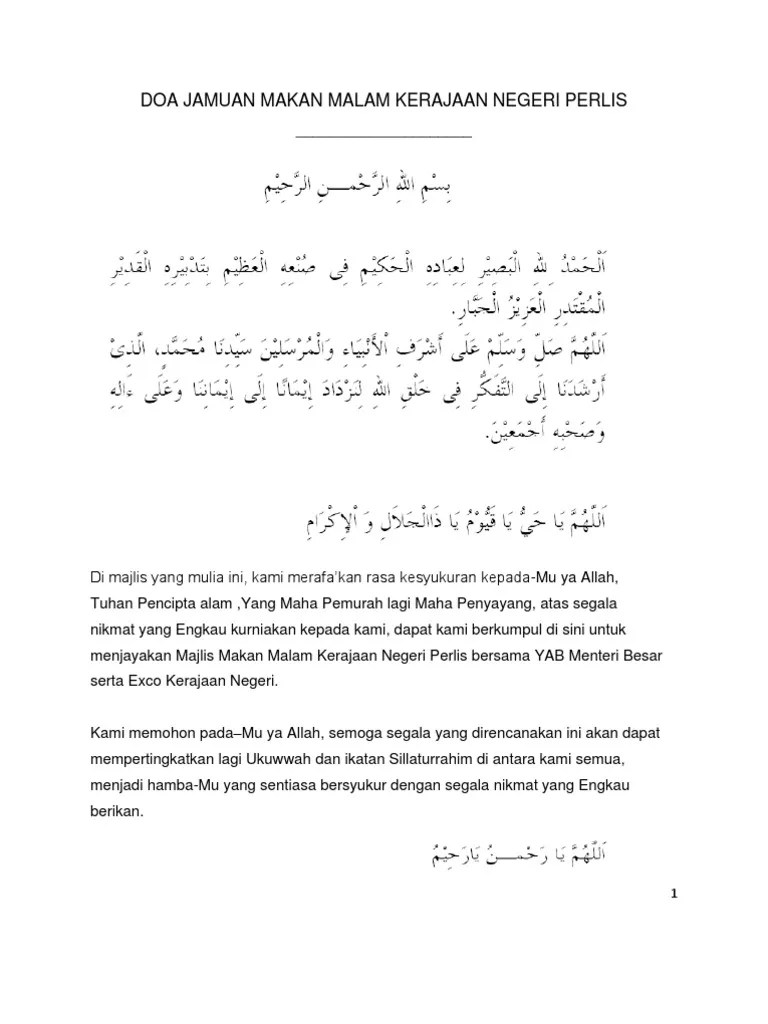 DOA JAMUAN MAKAN MALAM KERAJAAN NEGERI PERLIS
بِسْمِ اللهِ الرَّحْمـــنِ الرَّحِيْمِ
اَلْحَمْدُ لِلهِ الْبَصِيْرِ لِعِبَادِهِ الْحَكِيْمِ فِى صُنْعِهِ الْعَظِيْمِ بِتَدْبِيْرِهِ الْقَدِيْرِ
الْمُقْتَدِرِ الْعَزِيْزُ الْجَبَّارِ.
اَللَّهُمَّ صَلِّ وَسَلِّمْ عَلَى أَشْرَفِ اْلأَنْبِيَاءِ وَالْمُرْسَلِيْنَ سَيِّدِنَا مُحَمَّدٍ، الَّذِىْ
أَرْشَدَنَا إِلَى التَّفَكُّرِ فِى خَلْقِ اللهِ لِنَزْدَادَ إِيْمَانًا إِلَى إِيْمَانِنَا وَعَلَى ءَالِهِ
وَصَحْبِهِ أَجْمَعِيْنَ.
اَللَّهُمَّ يَا حَيُّ يَا قَيُّوْمُ يَا ذَاالْجَلاَلِ وَ اْلإِكْرَامِ
Di majlis yang mulia ini, kami merafa’kan rasa kesyukuran kepada-Mu ya Allah,
Tuhan Pencipta alam ,Yang Maha Pemurah lagi Maha Penyayang, atas segala
nikmat yang Engkau kurniakan kepada kami, dapat kami berkumpul di sini untuk
menjayakan Majlis Makan Malam Kerajaan Negeri Perlis bersama YAB Menteri Besar
serta Exco Kerajaan Negeri.
Kami memohon pada–Mu ya Allah, semoga segala yang direncanakan ini akan dapat
mempertingkatkan lagi Ukuwwah dan ikatan Sillaturrahim di antara kami semua,
menjadi hamba-Mu yang sentiasa bersyukur dengan segala nikmat yang Engkau
berikan.
اَللَّهُمَّ يَا رَحْمـــنُ يَارَحِيْمُ
1